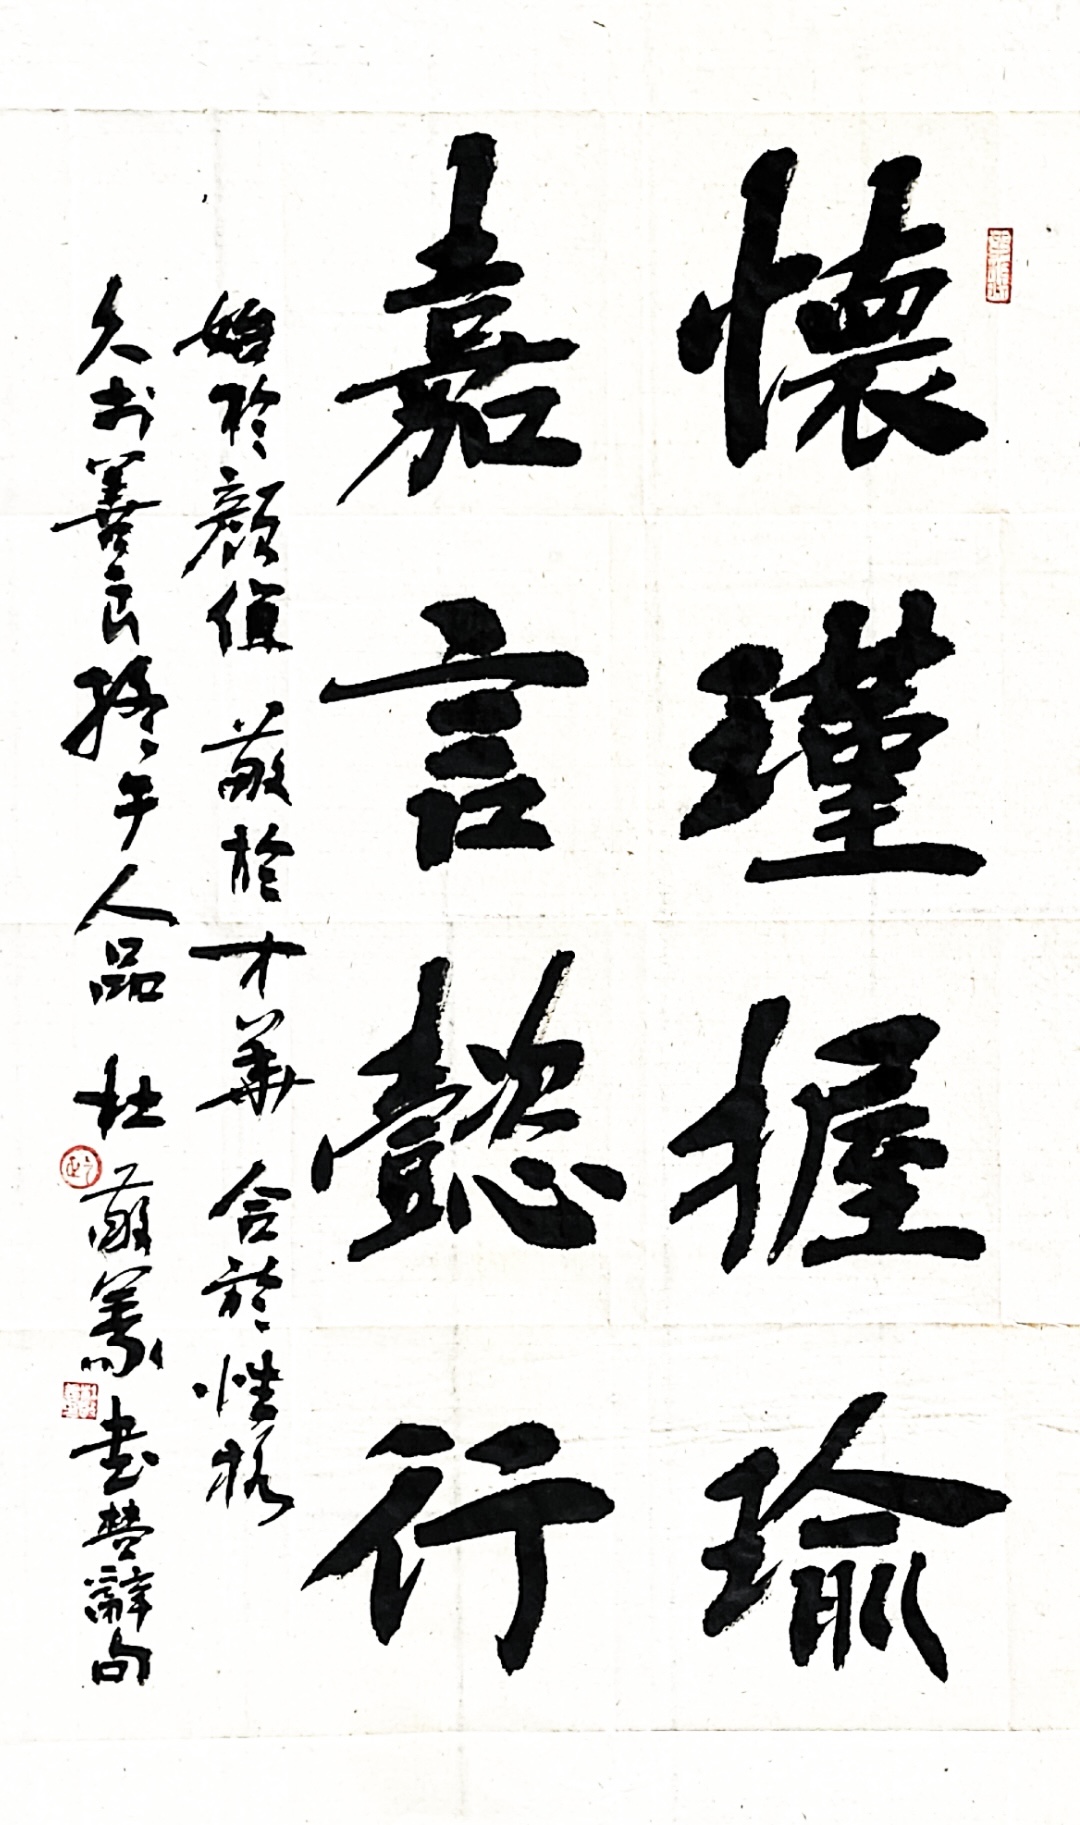 懷瑾握瑜
嘉言懿行
始於顏值 敬於才華 合於性格
久於善良 終于人品 杜敬 書楚辭句